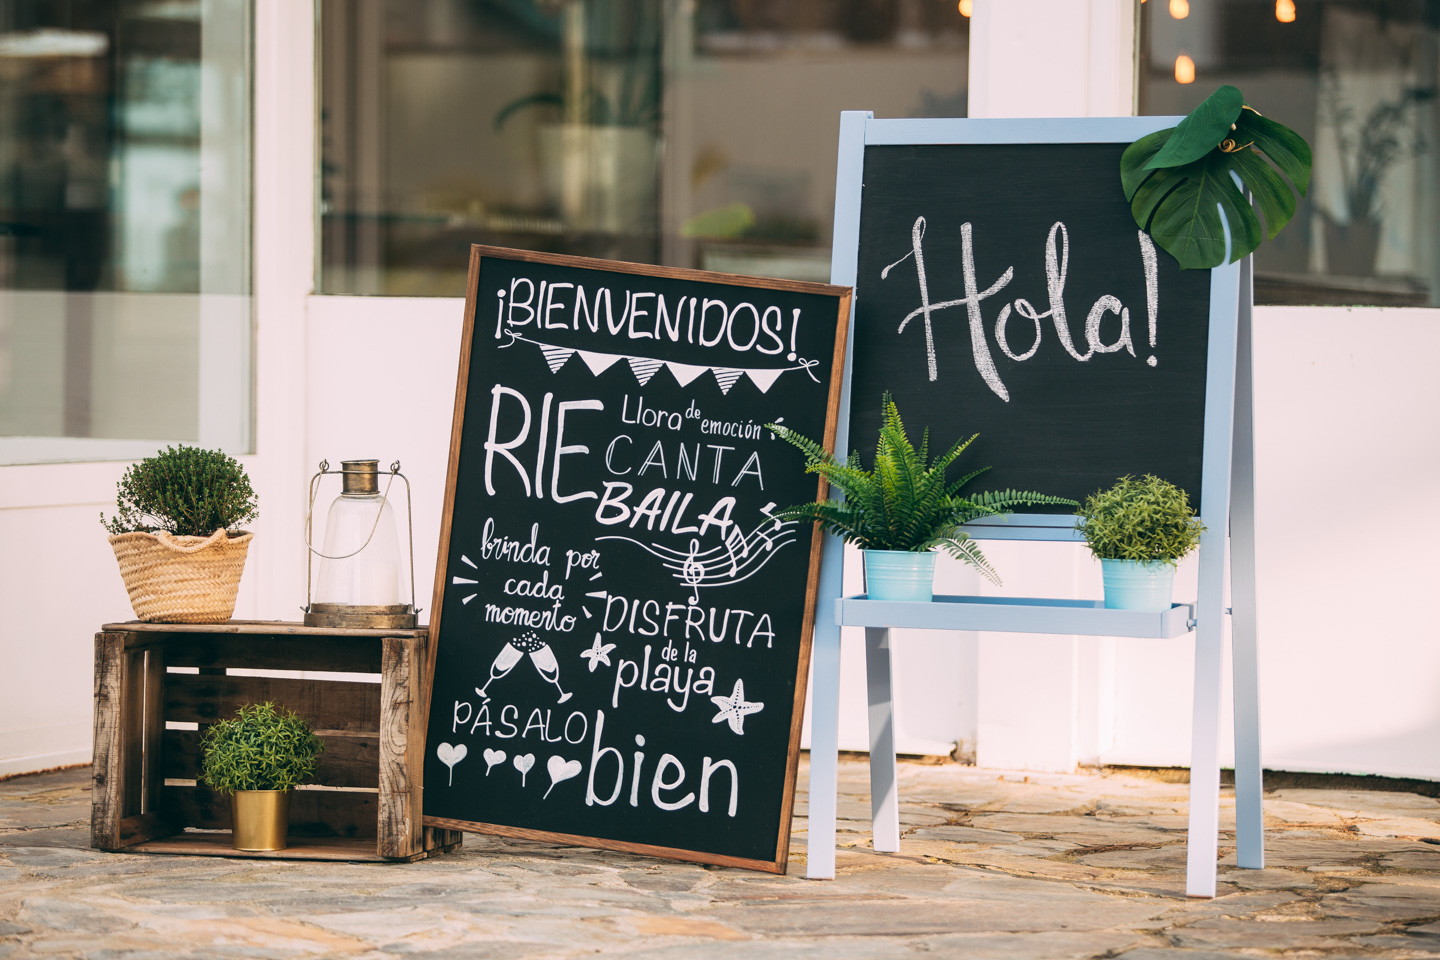 ¡BIENVENIDOS!
RIE
Llora de emoción
CANTA
BAILA
brinda por
cada
momento
DISFRUTA
de la
playa
PÁSALO
bien
Hola!